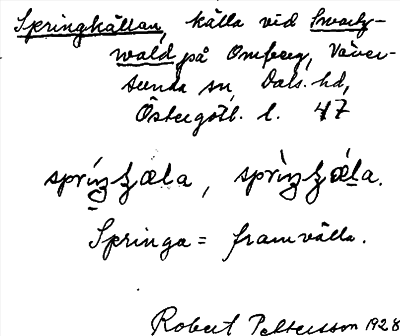 Springkällan, källa vid Svartz-
wald på Omberg, Väver-
sunda sn, Dals. hd,
Östergötl. l. 47
spriŋȝæla, sprìŋȝæ̀la.
Springa = framvälla.
Robert Pettersson 1928